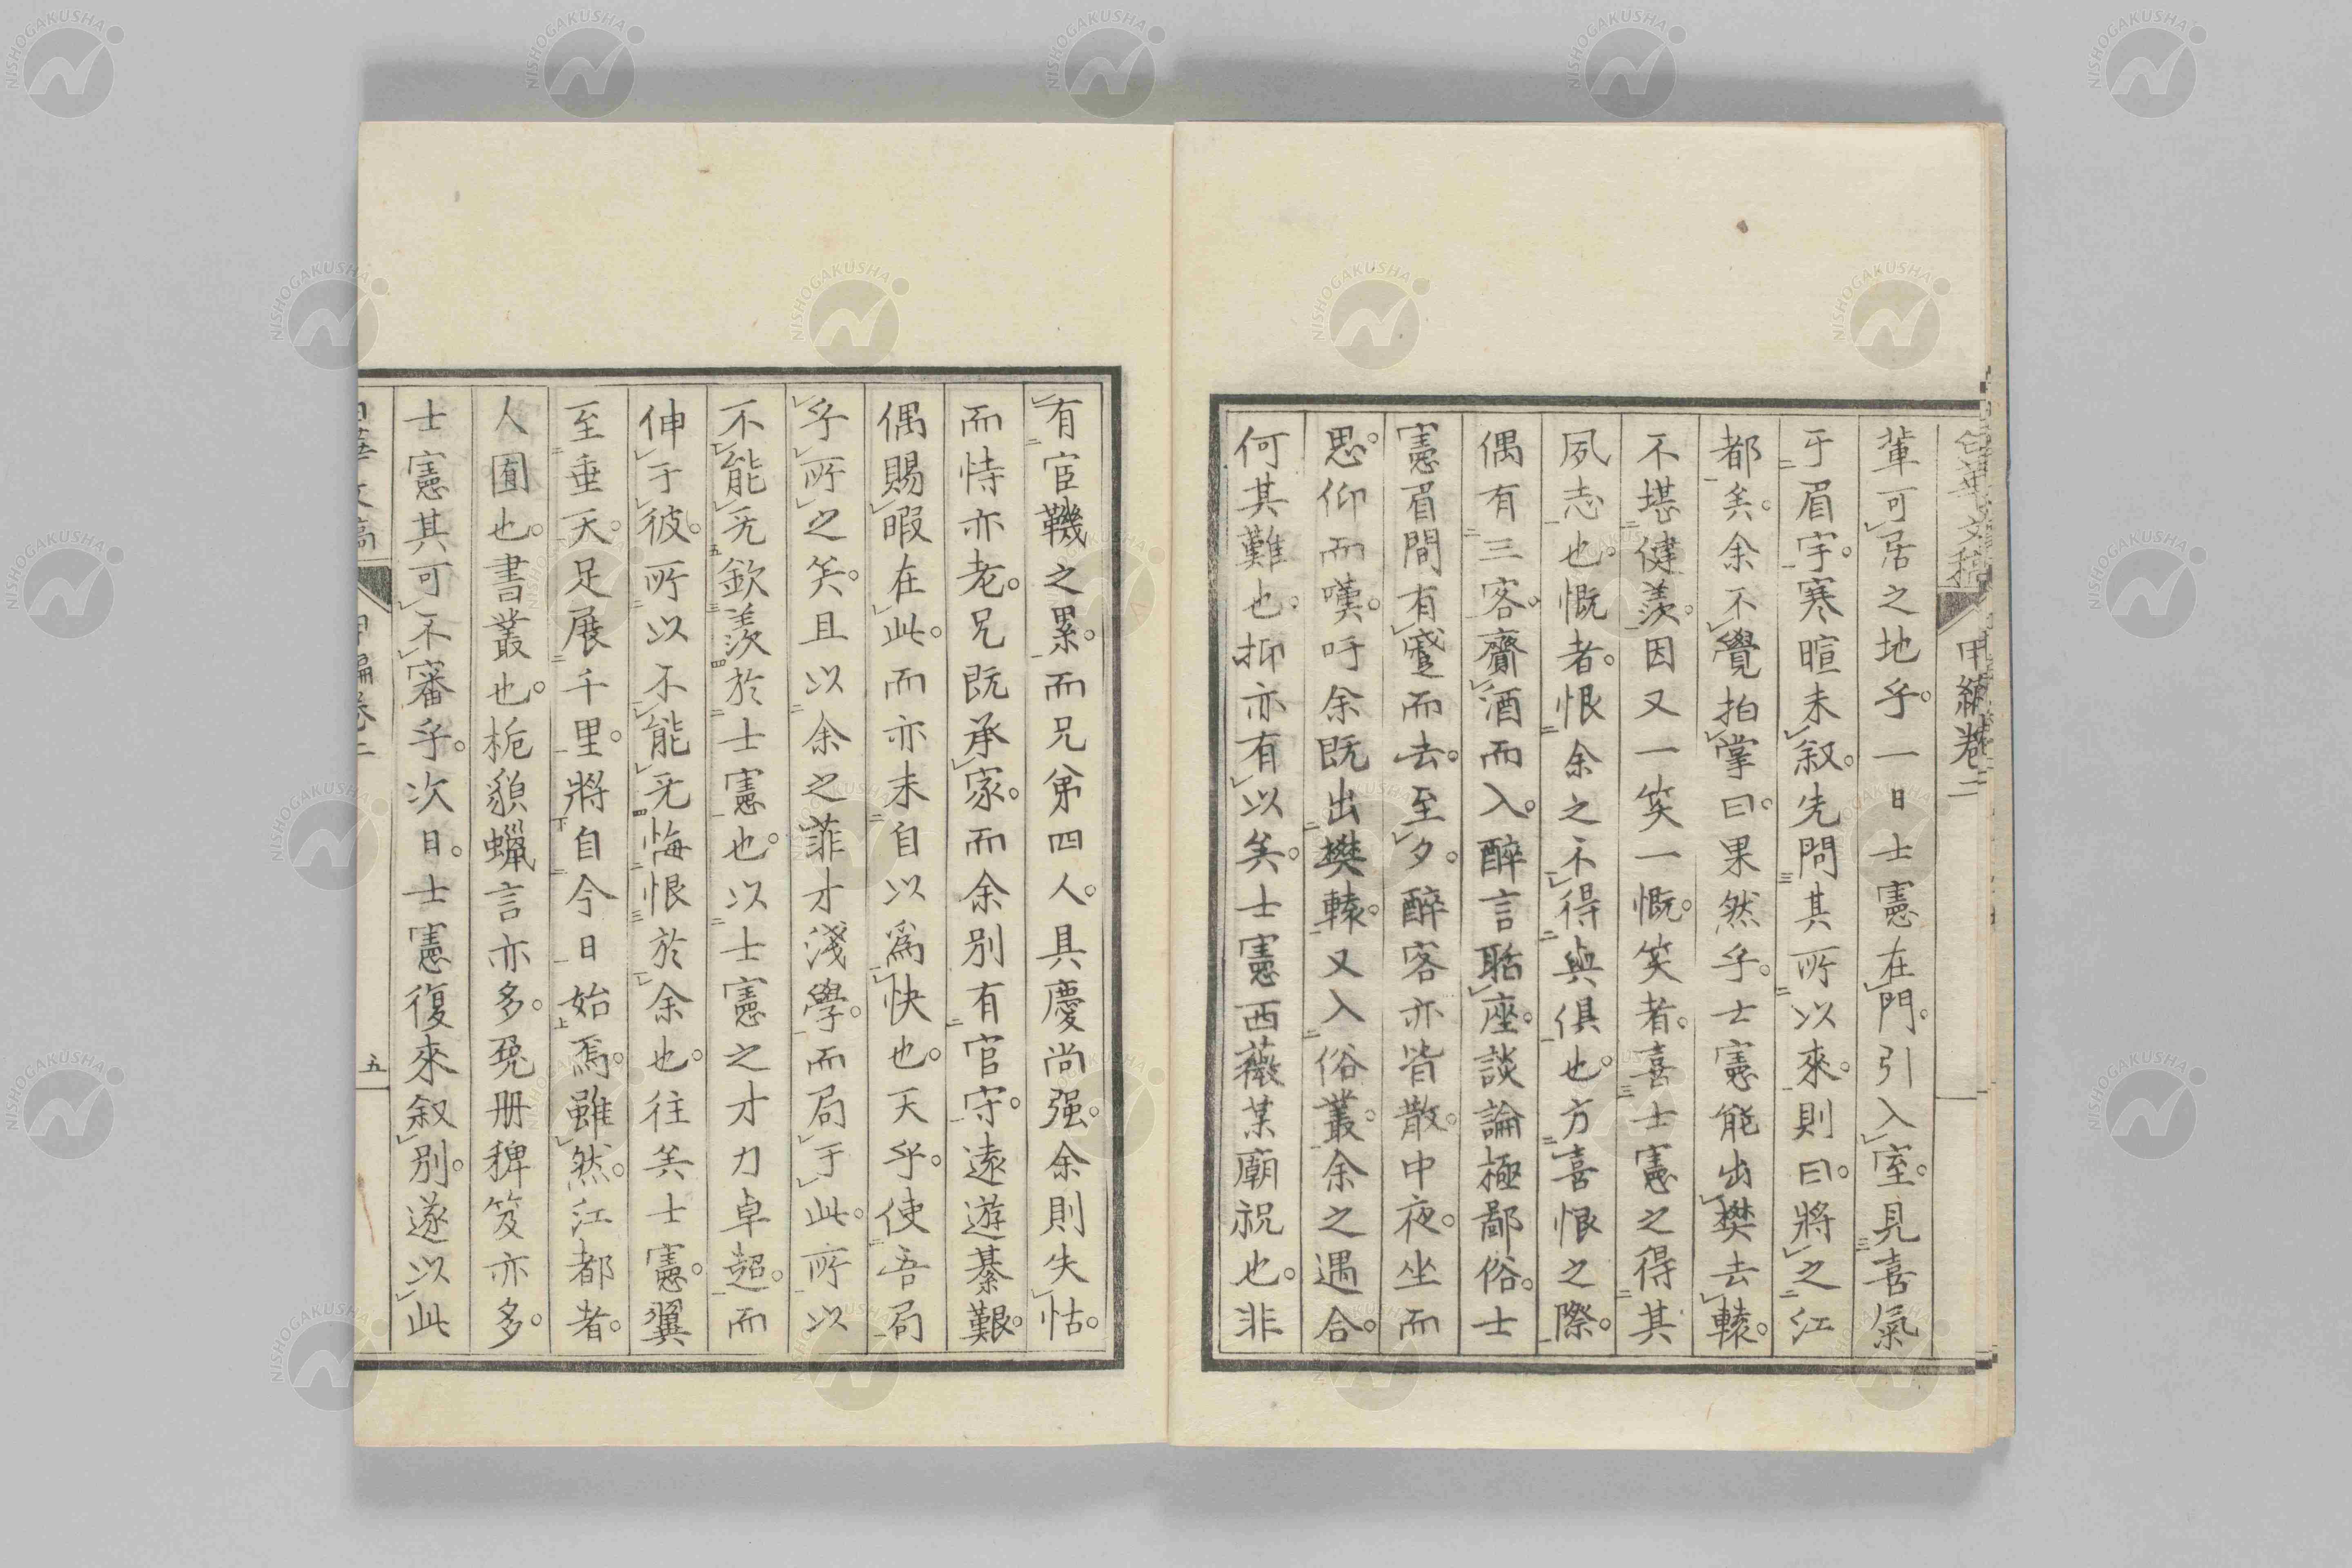 白華文稿 甲編卷二
輩可居之地乎。一日士憲在門。引入室。見喜氣
于眉宇。寒暄未叙。先問其所以來。則曰。將之江
都矣。余不覺拍掌曰。果然乎。士憲能出樊去轅。
不堪健羨。因又一笑一慨。笑者。喜士憲之得其
夙志也。慨者。恨余之不得與俱也。方喜恨之際。
偶有三客。齎酒而入。醉言聒座。談論極鄙俗。士
憲眉間有蹙而去。至夕。醉客亦皆散。中夜。坐而
思。仰而嘆。吁余既出樊轅。又入俗叢。余之遇合。
何其難也。抑亦有以矣。士憲西薇某廟祝也。非
有宦鞿之累。而兄弟四人。具慶尚强。余則失怙。
而恃亦老。兄既承家。而余別有官守。遠遊綦艱。
偶賜暇在此。而亦未自以爲快也。天乎。使吾局
乎所之矣。且以余之菲才淺學。而局于此。所以
不能无欽羨於士憲也。以士憲之才力卓超。而
伸于彼。所以不能无悔恨於余也。往矣士憲。翼
至垂天。足展千里。將自今日始焉。雖然。江都者。
人囿也。書叢也。梔貌蠟言亦多。兔册稗笈亦多。
士憲其可不審乎。次日。士憲復來叙別。遂以此
白華文稿 甲編卷二 五
NISHOGAKUSHA